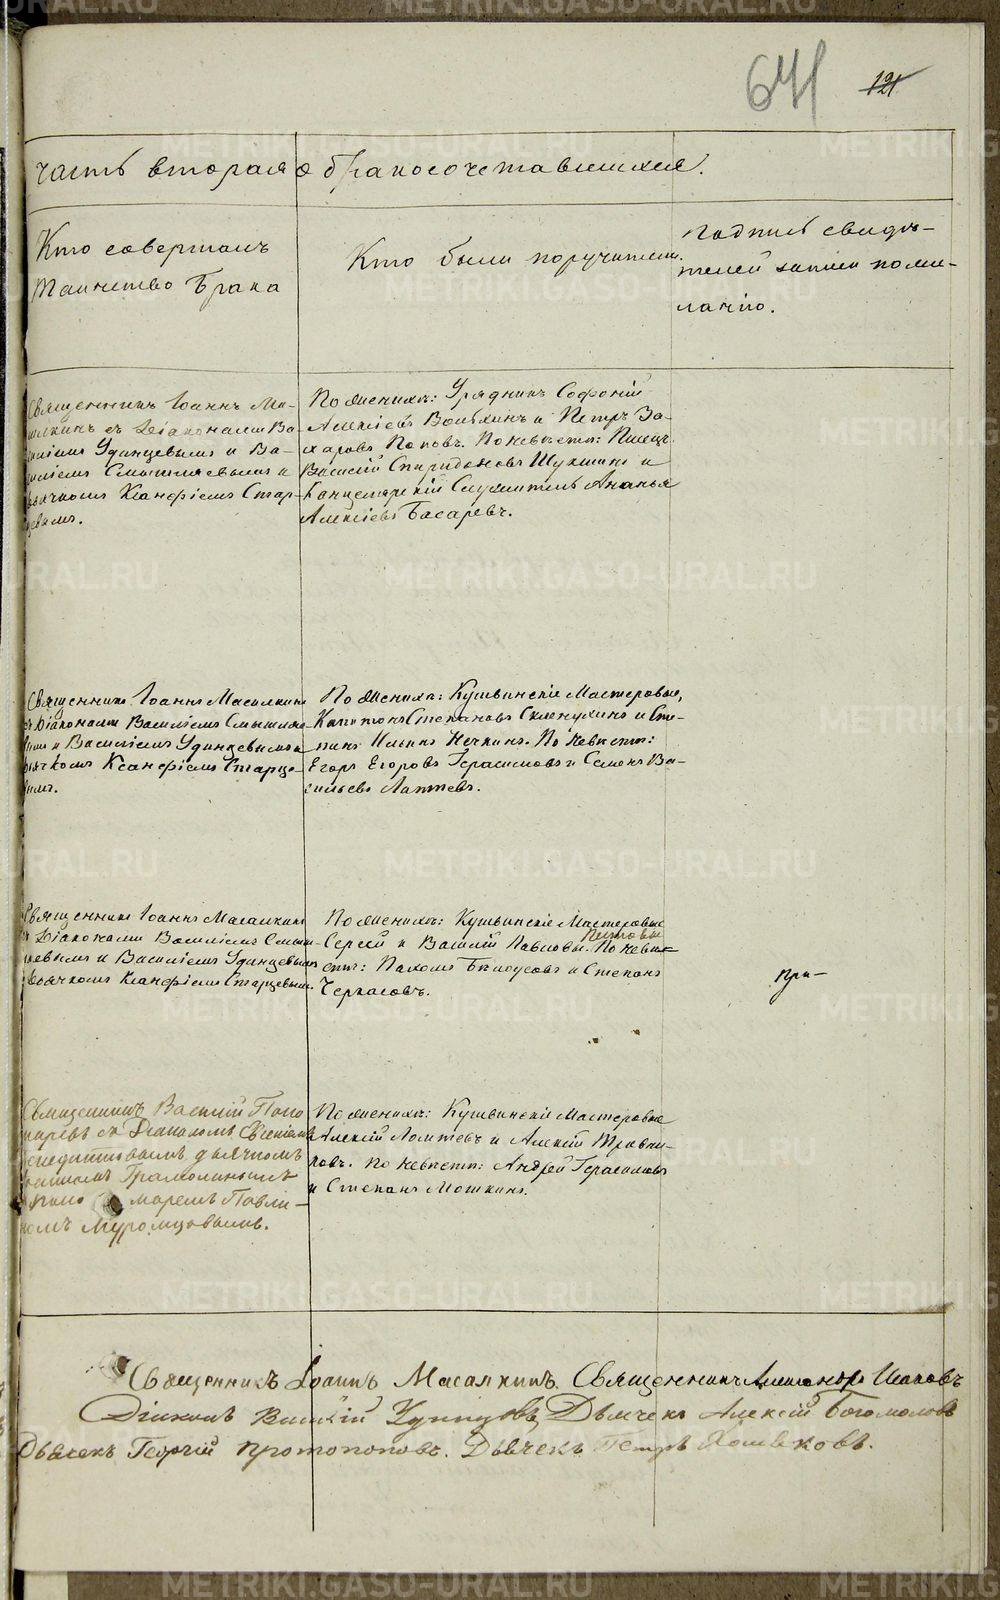 641
121
часть вторая о бракосочетавшихся.
Кто совершалъ
Таинство Брака
Кто были поручители.
подпись свидѣ-
телей записи по же-
ланію.
Священникъ Іоаннъ Ма-
салкинъ съ Діаконами Ва-
силіемъ Удинцевымъ и Ва-
силіемъ Смышляевымъ и
дьячкомъ Ксанфіемъ Стар-
цевымъ.
По женихѣ: Урядникъ Софоній
Алексѣевъ Волхинъ и Петръ За-
харовъ Поповъ. По невѣстѣ: Писецъ
Василій Спиридоновъ Шукшинъ и
Канцелярскій Служитель Ананья
Алексѣевъ Басаревъ.
Священникъ Іоаннъ Масалкинъ
съ Діаконами Василіемъ Смышляе-
вымъ и Василіемъ Удинцевымъ и
дьячкомъ Ксанфіемъ Старце-
вымъ.
По женихѣ: Кушвинскіе Мастеровые,
Капитонъ Степановъ и Сте-
панъ Ильинъ Нечкинъ. По невѣстѣ:
Егоръ Егоровъ Герасимовъ и Семенъ Ва-
сильевъ Лаптевъ.
Священникъ Іоаннъ Масалкинъ
съ Діаконами Василіемъ Смыш-
ляевымъ и Василіемъ Удинцевымъ
дьячкомъ Ксанфіемъ Старцевымъ.
По женихѣ: Кушвинскіе Мастеровые
Сергѣй и Василій Павловы. По невѣ-
стѣ: Пахомъ Бѣлоусовъ и Степанъ
Черкасовъ.
при-
Священникъ Василій Поно
маревъ съ Діакономъ Евгеніемъ
дьячкомъ
и поно маремъ Павли-
номъ Муромцовымъ.
По женихѣ: Кушвинскіе Мастеровые
Алексѣй Ломтевъ и Алексѣй Травни-
ковъ. По невѣстѣ: Андрей Герасимовъ
и Степанъ Мошкинъ.
Священникъ Іоаннъ Масалкинъ. Священникъ Александръ Иваковъ
Діаконъ Василій Удинцовъ, Дьячекъ Алексѣй Богомоловъ
Дьячекъ Георгій Протопоповъ. Дьячекъ Петръ Хомяковъ.
METRIKI.GASO-URAL.RU